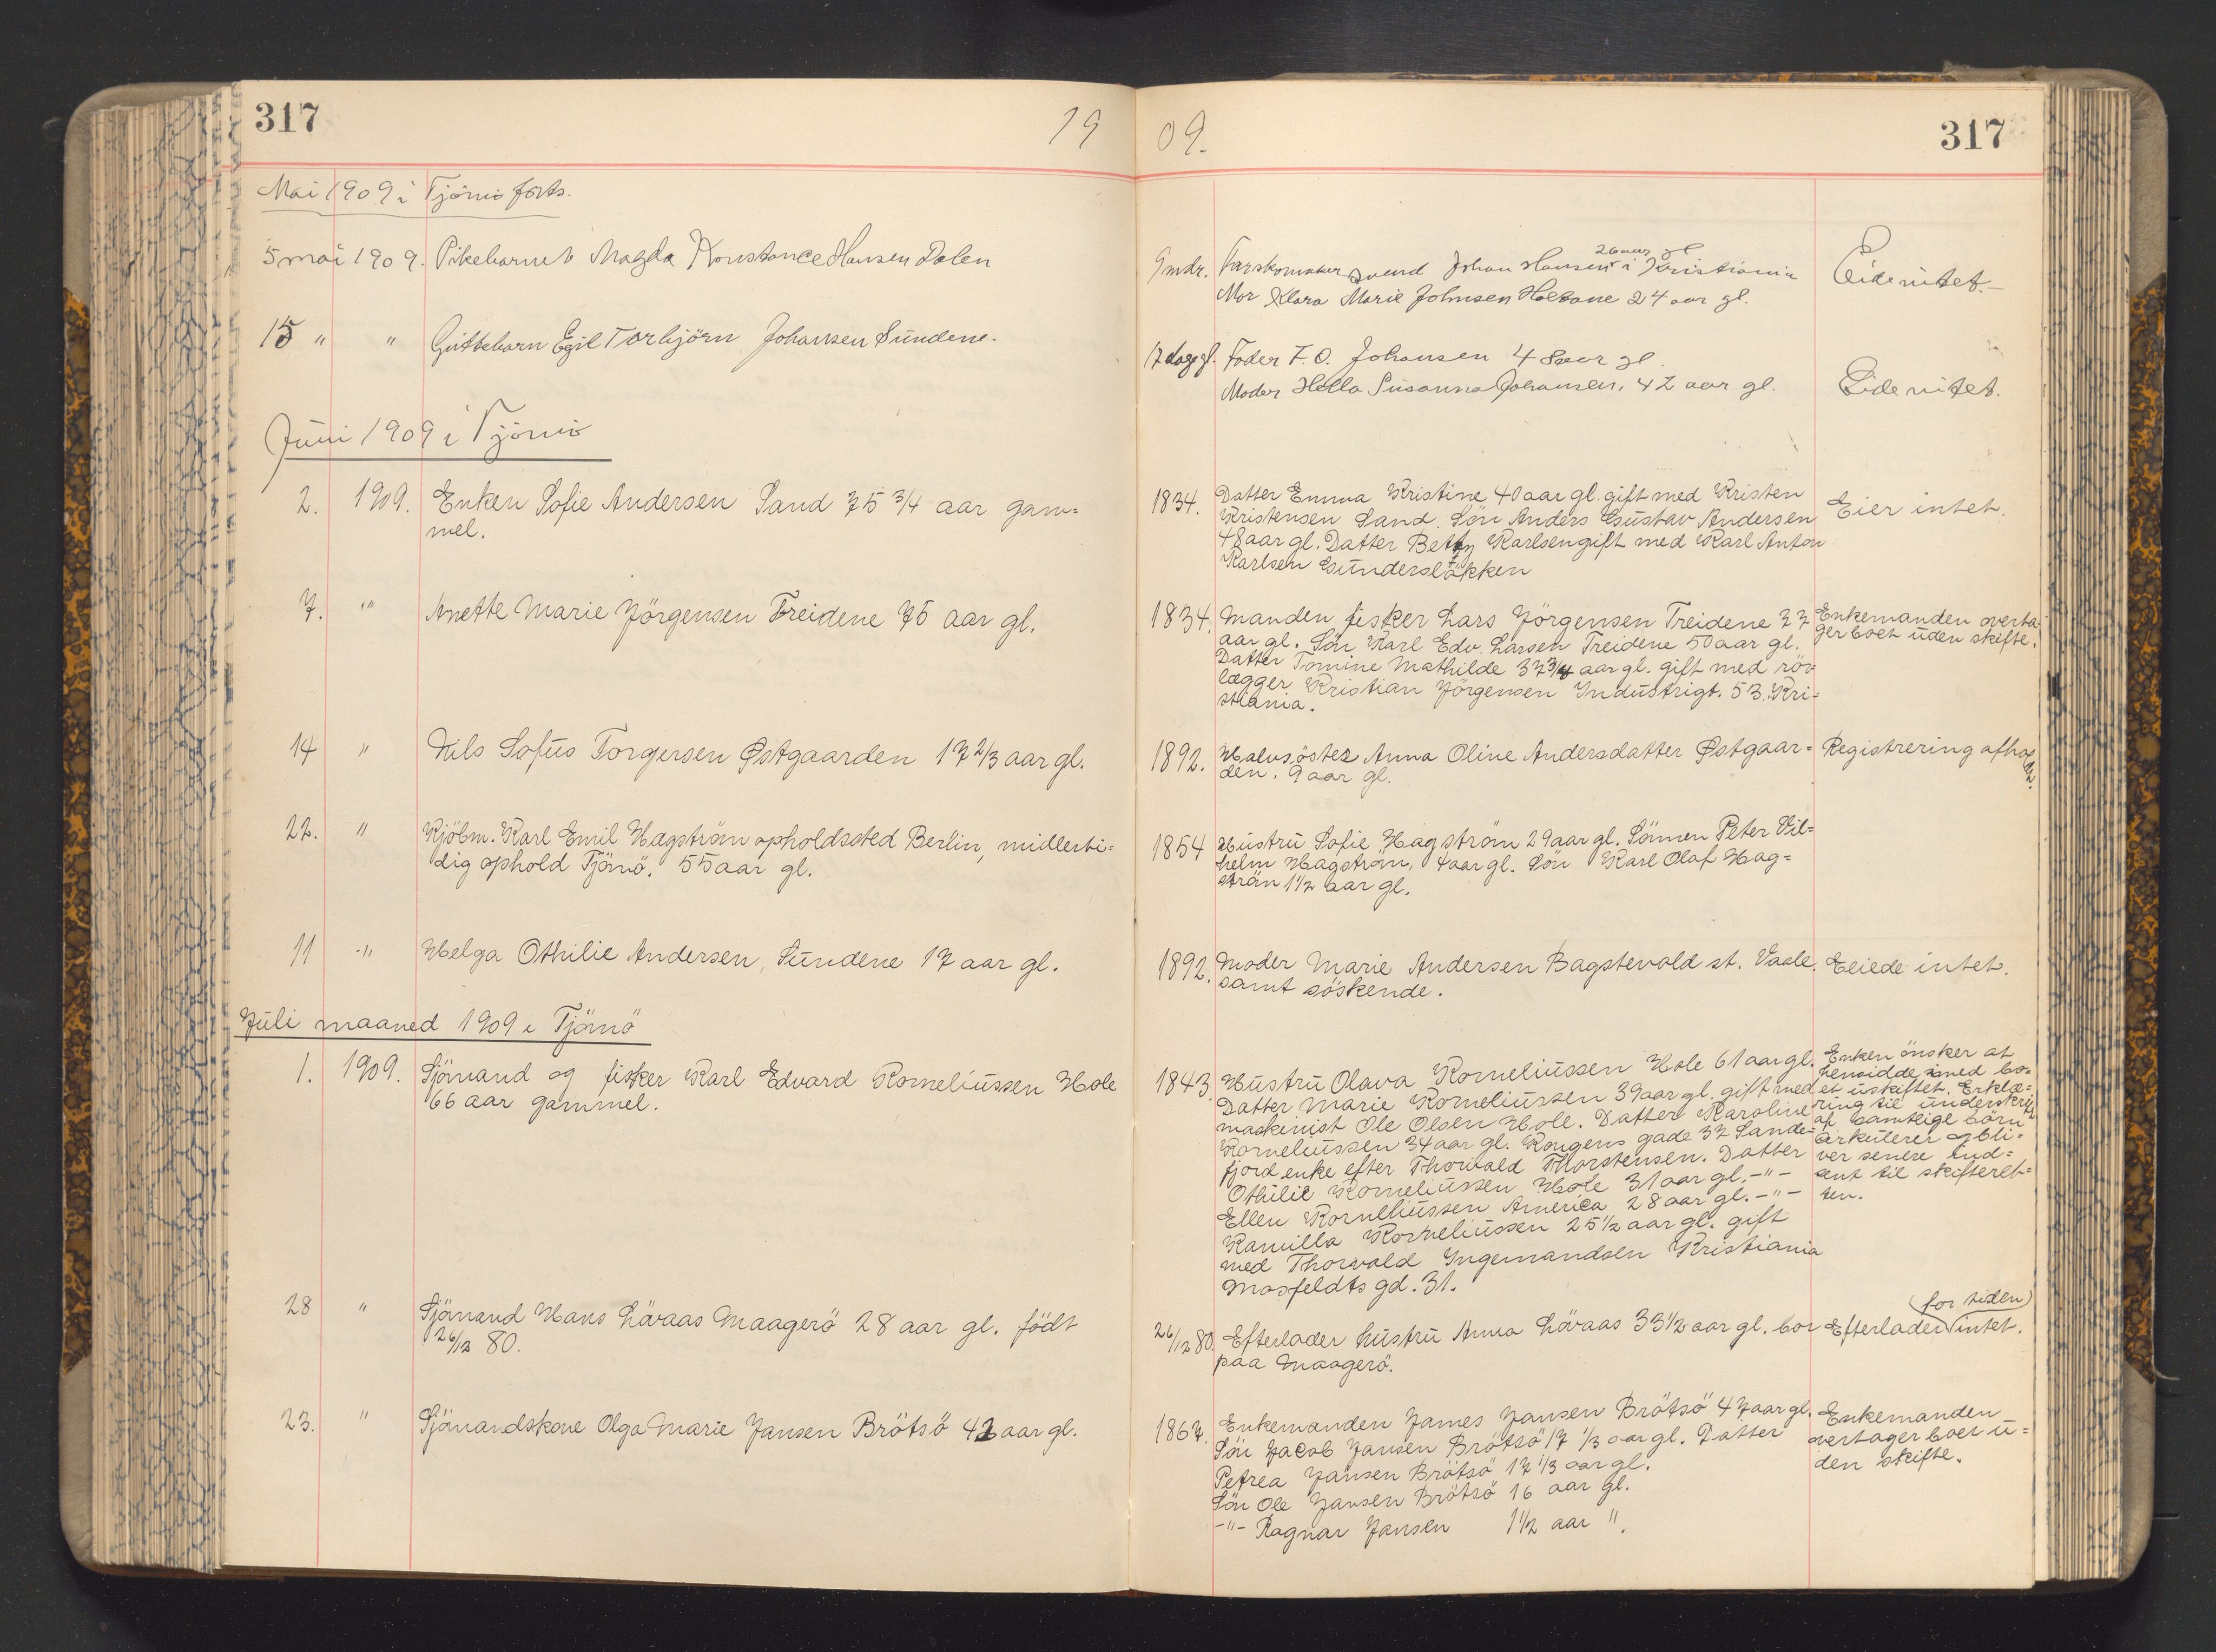 317
19
09.
317
Mai 1909 i Tjömö forts.
5 mai 1909. Pikebarnet Magda Konstance Hansen Dalen
9 mdr. Farskomaker svend Johan Hansen 26 aar gl i Kristiania
Mor Klara Marie Johnsen 24 aar gl.
Eide intet.
15 " " Guttebarn Egil Torbjörn Johansen Sundene.
17 dage gl. Fader F. O. Johansen 48 aar gl.
Moder Susanna Johansen, 42 aar gl.
Eide intet.
Juni 1909 i Tjömö
2. 1909. Enken Sofie Andersen Sand 75 3/4 aar gam=
mel.
1834. Datter Emma Kristine 40 aar gl. gift med Kristen
Kristensen Sand. Sön Anders Gustav Andersen
48 aar gl. Datter Betty Karlsen gift med Karl Anton
Karlsen Gunderslökken
Eier intet.
7. " Anette Marie Jörgensen Treidene 75 aar gl.
1834. Manden fisker Lars Jörgensen Treidene 77
aar gl. Sön Karl Edv. Larsen Treidene 50 aar gl.
Datter Tomine Mathilde 37 3/4 aar gl. gift med rör
lægger Kristian Jörgensen Industrigt. 53. Kri-
stiania.
Enkemanden overta-
ger boet uden skifte.
14 " Nils Sofus Torgersen Østgaarden 17 2/3 aar gl.
1892. Halvsöster Anna Oline Andersdatter Østgaar=
den. 9 aar gl.
Registrering afhol
dt.
22. " Kjöbm. Karl Emil Hagström opholdssted Berlin, midlerti=
dig ophold Tjömö. 55 aar gl.
1854 Hustru Sofie Hagström 29 aar gl. Sönnen Peter Vil=
helm Hagström, 4 aar gl. Sön Karl Olaf Hag=
strön 1 1/2 aar gl.
11 -" Helga Othilie Andersen, Sundene 17 aar gl.
1892. Moder Marie Andersen Bagstevold st. Vaale.
samt söskende.
Eiede intet.
Juli maaned 1909 i Tjömö
1. 1909. Sjömand og fisker Karl Edvard Korneliussen Hole
66 aar gammel.
1843. Hustru Olava Korneliussen Hole 61 aar gl.
Datter Marie Korneliussen 39 aar gl. gift med
maskinist Ole Olsen Hole. Datter Karoline
Korneliussen 34 aar gl. Kongens gade 37 Sande-
fjord enke efter Thorvald Thorstensen. Datter
Othilie Korneliussen Hole 31 aar gl. -"-
Ellen Korneliussen America 28 aar gl. -"-
Kamilla Korneliussen 25 1/2 aar gl. gift
med Thorvald Ingemandsen Kristiania
Mosfeldts gd. 31.
Enken önsker at
hensidde med bo=
et uskiftet. Erklæ=
ring til underskrift
af samtlige börn
cirkulerer og bli=
ver senere ind=
sent til skifteret=
ten.
28 " Sjömand Hans Lövaas Maagerö 28 aar gl. födt
26/12 80.
26/12 80. Efterlader hustru Anna Lövaas 33 1/2 aar gl. bor
paa Maagerö.
(for tiden)
Efterlader intet.
23. " Sjömandskone Olga Marie Jansen Brötsö 42 aar gl.
1867. Enkemanden James Jansen Brötsö 47 aar gl.
Sön Jacob Jansen Brötsö 17 1/3 aar gl. Datter
Petrea Jansen Brötsö 17 1/3 aar gl.
Sön Ole Jansen Brötsö 16 aar gl.
-"- Ragnar Jansen 1 1/2 aar ".
Enkemanden
overtager boet u=
den skifte.